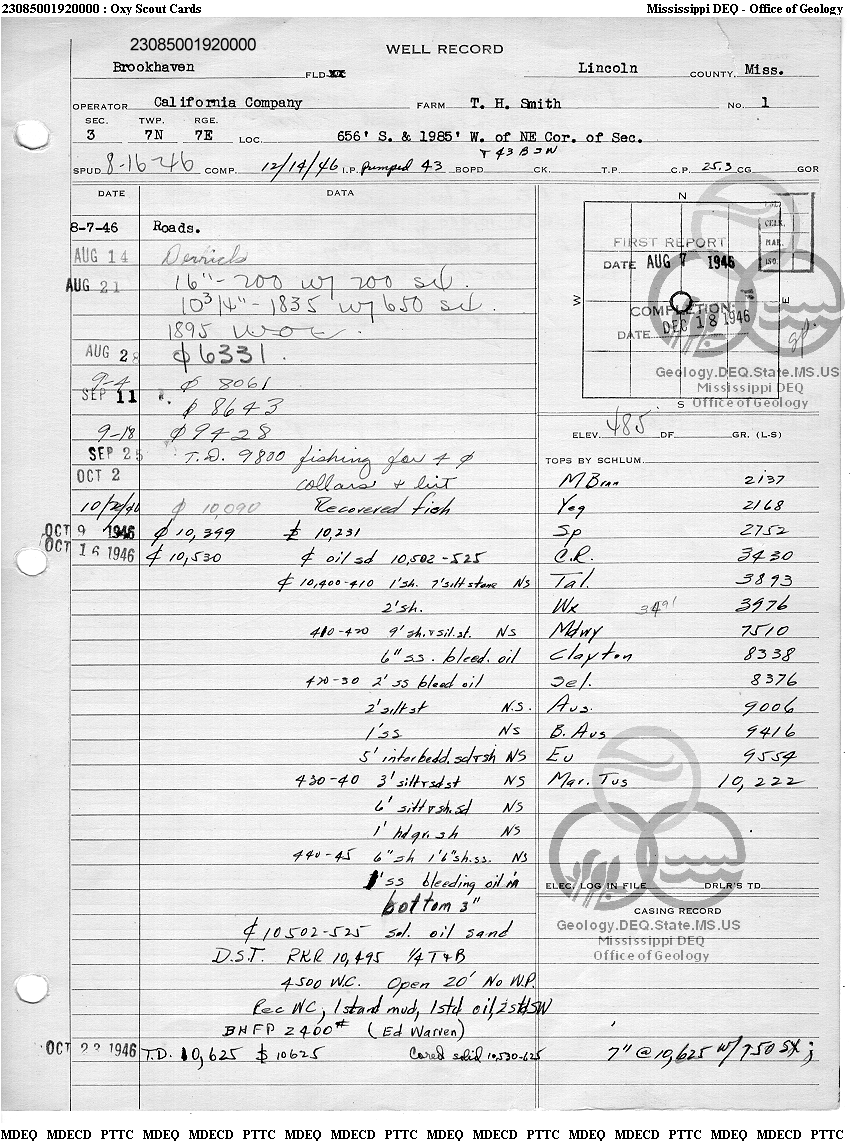 23085001920000 : Oxy Scout Cards Mississippi DEQ - Office of Geology
23085001920000
WELL RECORD
Brookhaven FLD. Lincoln COUNTY, Miss.
OPERATOR California Company FARM T. H. Smith No. 1
SEC. TWP. RGE.
3 7N 7E LOC. 656' S. & 1985' W. of NE Cor. of Sec.
+ 43 BSW
SPUD 8-16-46 COMP. 12/14/46 I.P. pumped 43 BOPD CK. T.P. C.P. 25.3 CG GOR
DATE DATA
8-7-46 Roads.
AUG 14 Derrick
AUG 21 16"- 200 w/ 200 sx.
10 3/4"- 1835 w/ 650 sx.
1895 WOC
AUG 28 ¢ 6331.
9-4 ¢ 8061
SEP 11 ¢ 8643
9-18 ¢ 9428
SEP 25 T.D. 9800 fishing for 4 ¢
OCT 2 collars + bit
¢ 10,090 Recovered fish
OCT 9 1946 ¢ 10,399 10,231
OCT 16 1946 ¢ 10,530 ¢ oil sd 10,502-525
¢ 10,400-410 1'sh. 7'siltstone NS
2'sh.
410-420 9' sh. & sil.st. NS
6" ss. bleed. oil
420-30 2' ss bleed oil
2' silt st N.S.
1'ss NS
5' interbedd. sd & sh NS
430-40 3' silt & sd st NS
6' silt & sh. sd NS
1' hd gr. sh NS
440-45 6"sh 1'6"sh.ss. NS
1'ss bleeding oil in
bottom 3"
¢ 10502-525 sol. oil sand
D.S.T. RKR 10,495 1/4 T & B
4500 W.C. Open 20' No W.P.
Rec WC, 1 stand mud, 1 std oil, 2 std SW
BHFP 2400# (Ed Warren)
OCT 23 1946 T.D. 10,625 $ 10625 Cored solid 10,530-625
N
W
E
S
FIRST REPORT
DATE AUG 7 1946
COMPLETION:
DATE DEC 18 1946
MAR.
ISO.
Geology.DEQ.State.MS.US
Mississippi DEQ
Office of Geology
ELEV. 485' DF GR. (L-S)
TOPS BY SCHLUM.
M Bran 2137
Yeg 2168
Sp 2752
C.R. 3430
Tal. 3893
Wx 3491 3976
Mdwy 7510
Clayton 8338
Sel. 8376
Aus. 9006
B. Aus 9416
Eu 9554
Mar. Tus 10,222
ELEC. LOG IN FILE DRLR'S TD
CASING RECORD
Geology.DEQ.State.MS.US
Mississippi DEQ
Office of Geology
7" @ 10,625 w/ 750 sx;
MDEQ MDECD PTTC MDEQ MDECD PTTC MDEQ MDECD PTTC MDEQ MDECD PTTC MDEQ MDECD PTTC MDEQ MDECD PTTC